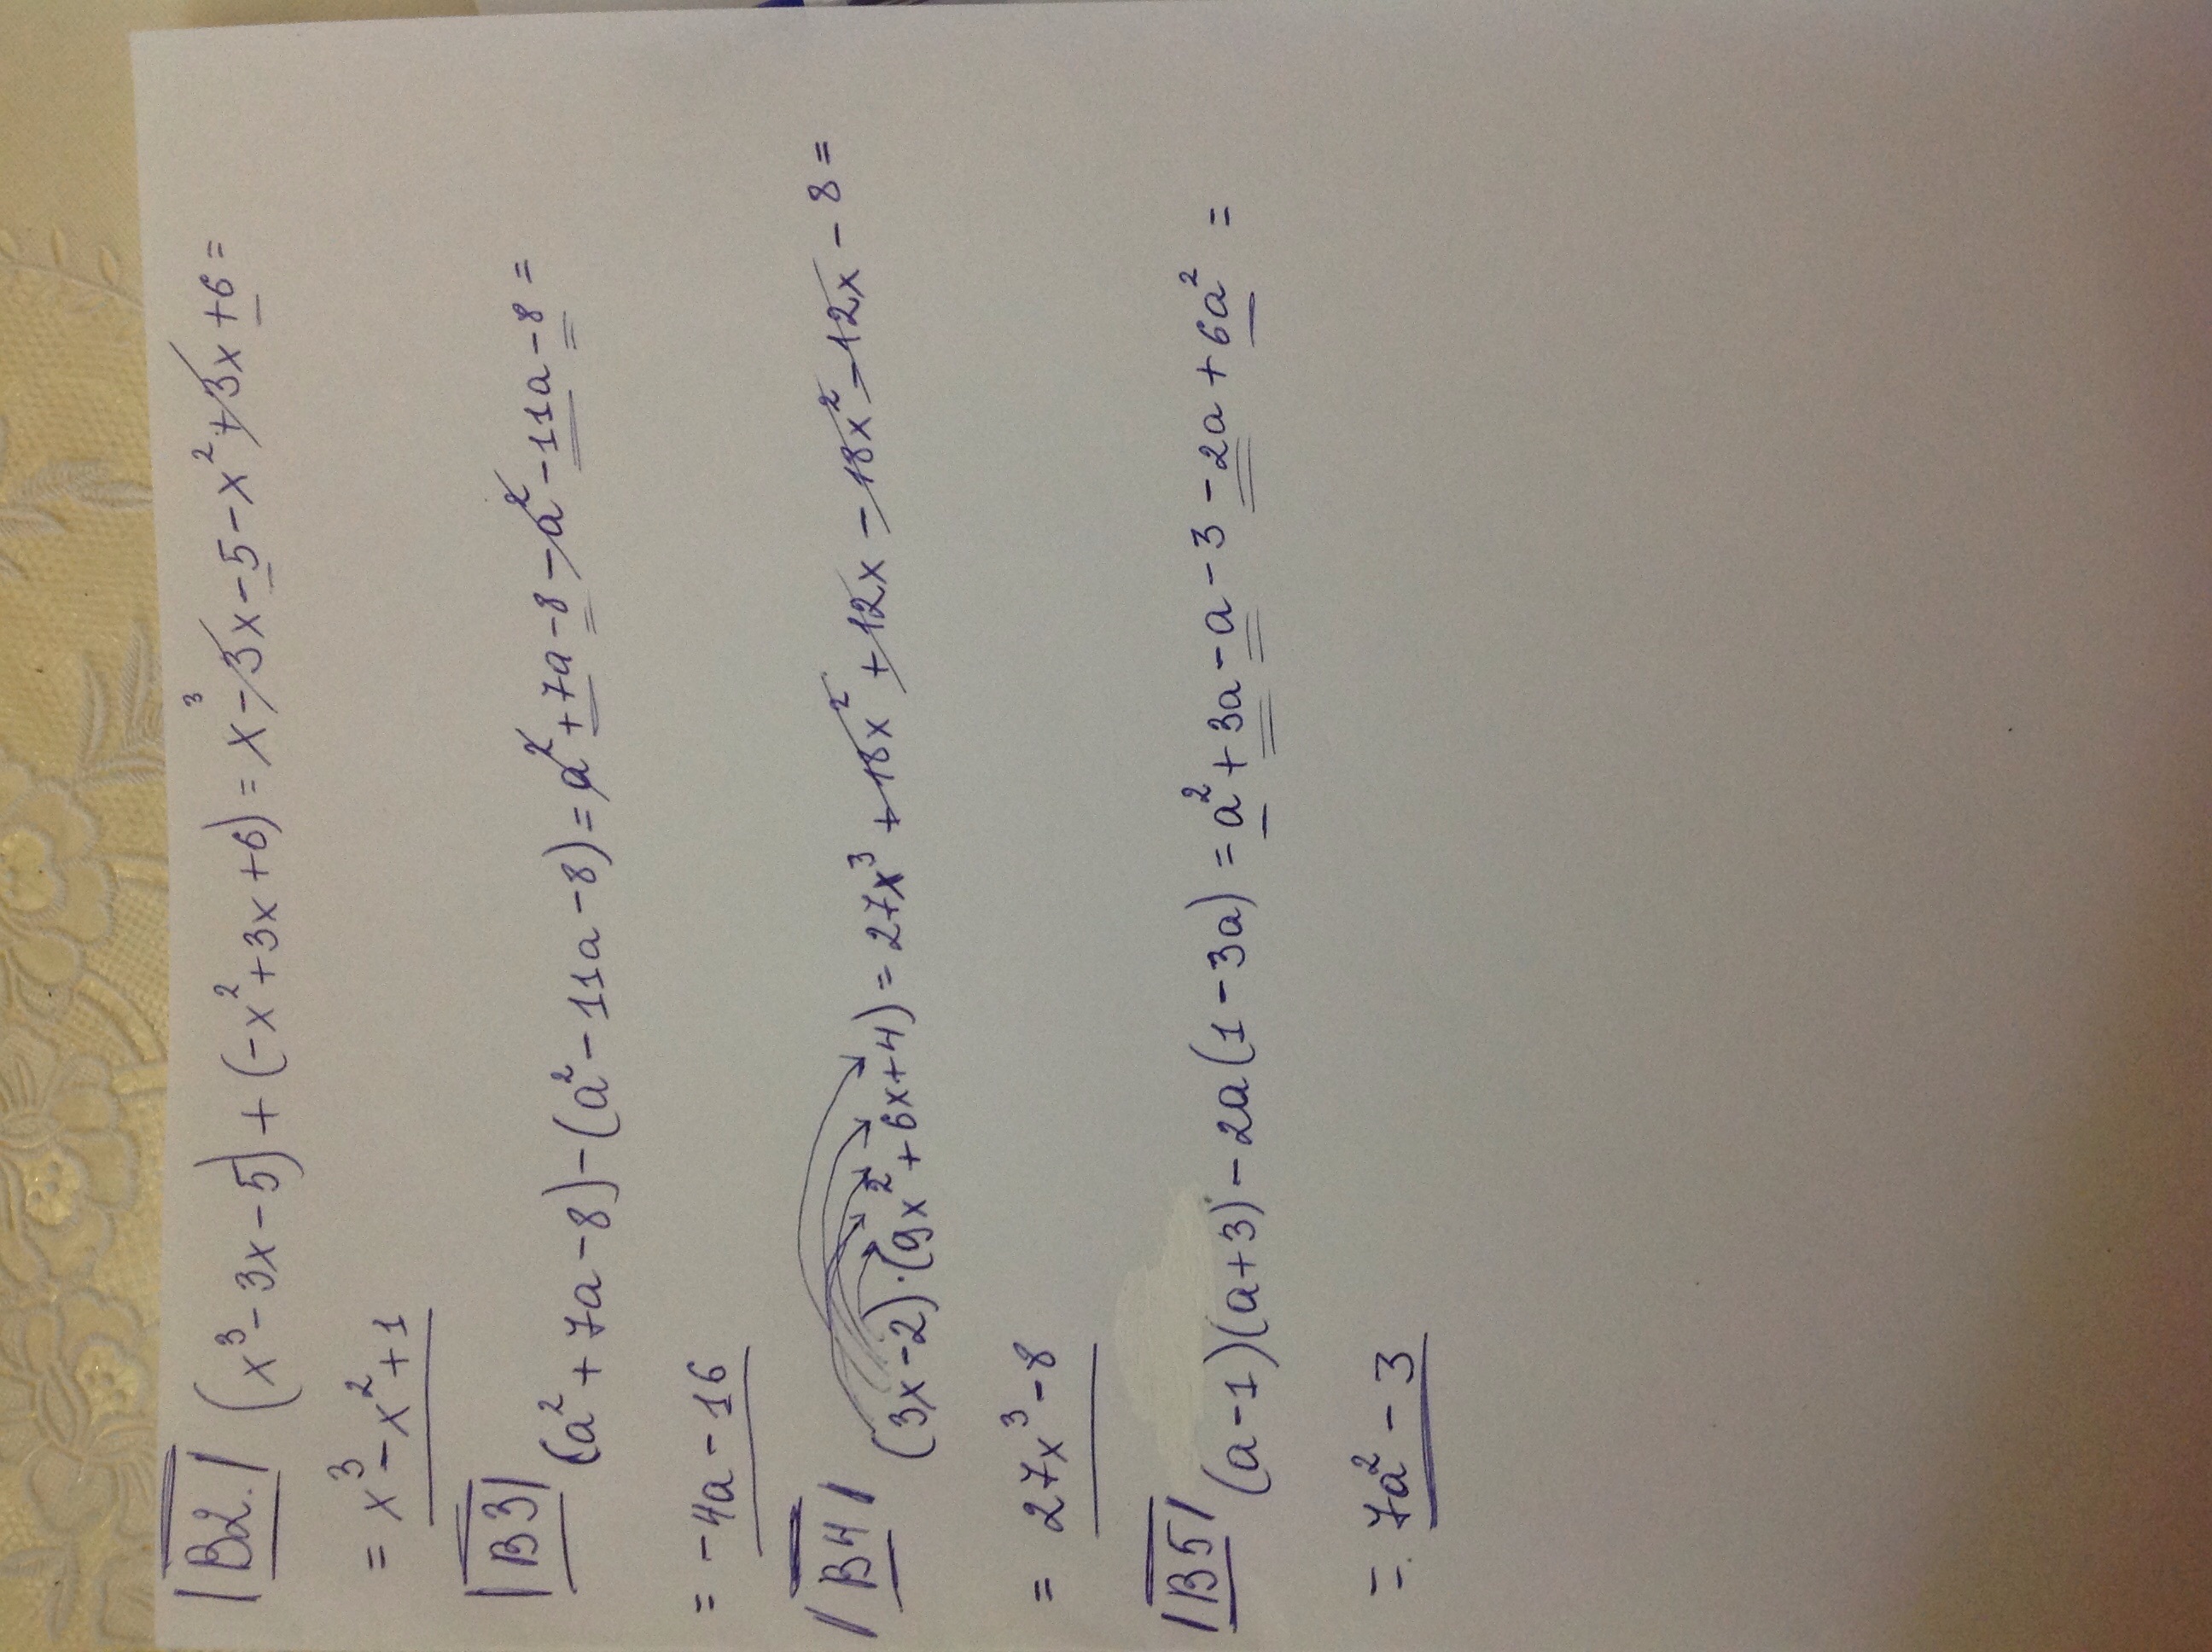 B2. (x³-3x-5)+(-x²+3x+6)=x³-3x-5-x²+3x+6=
=x³-x²+1
B3 (a²+7a-8)-(a²-11a-8)=a²+7a-8-a²-11a-8=
=-4a-16
B4 (3x-2)·(9x²+6x+4)=27x³+18x²+12x-18x²-12x-8=
=27x³-8
B5 (a-1)(a+3)-2a(1-3a)=a²+3a-a-3-2a+6a²=
=7a²-3